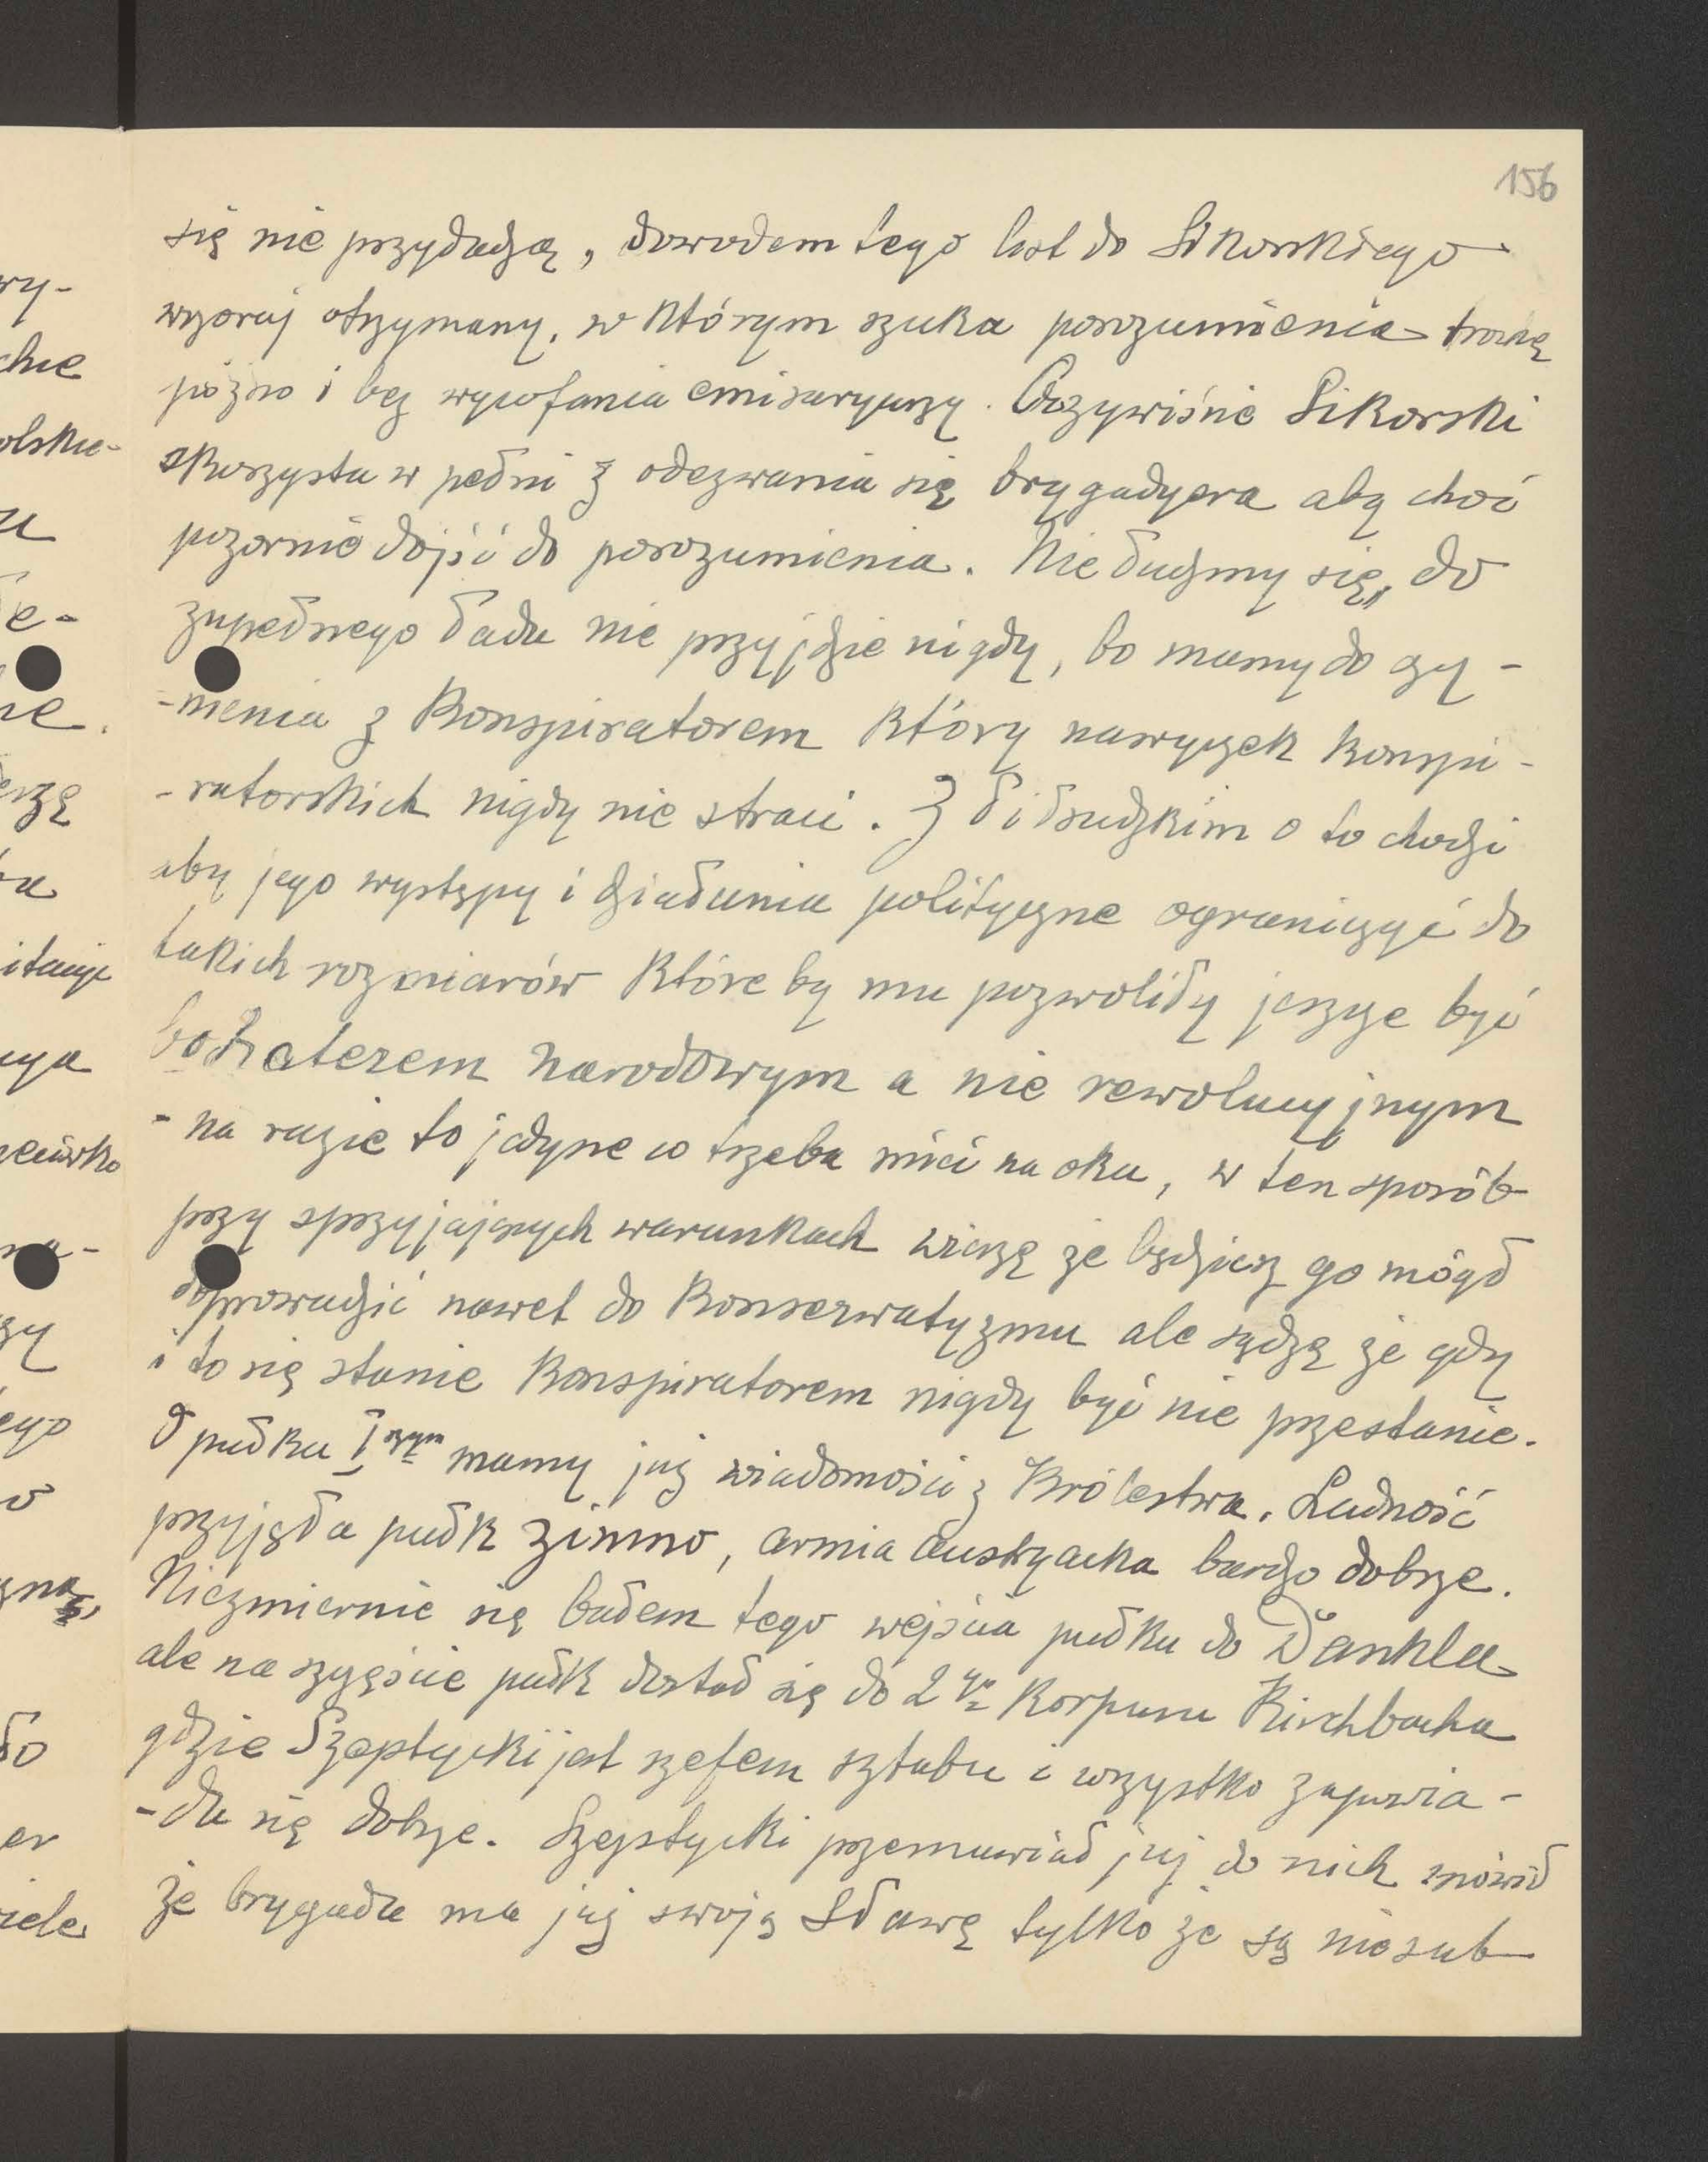 156
się nie przydadzą, dowodem tego list do Sikorskiego
wczoraj otrzymany, w którym szuka porozumienia trochę
późno i bez wycofania emisaryuszy. Oczywiśnie Sikorski
skorzysta w pełni z odezwania się brygadyera aby choć
pozornie dojść do porozumienia. Nie łudźmy się, do
zupełnego ładu nie przyjdzie nigdy, bo mamy do czy-
-nienia z Konspiratorem który nawyczek konspi-
-ratorskich nigdy nie straci. Z Piłsudzkim o to chodzi
aby jego występy i działania polityczne ograniczyć do
takich rozmiarów które by mu pozwoliły jeszcze być
bohaterem narodowym a nie rewolucyjnym
- na razie to jedyne co trzeba mieć na oku, w ten sposób
przy sprzyjających warunkach wierzę że będziesz go mógł
doprowadzić nawet do Konserwatyzmu ale sądzę że gdy
i to się stanie Konspiratorem nigdy być nie przestanie.
O pułku I szym mamy już wiadomości z Królestwa. Ludność
przyjęła pułk zimno, armia austryacka bardzo dobrze.
Niezmiernie się bałem tego wejścia pułku do Dankla
ale na szczęście pułk dostał się do 2go Korpusu Kirchbacha
gdzie Szeptycki jest szefem sztabu i wszystko zapowia-
-da się dobrze. Szeptycki przemawiał już do nich mówił
że brygada ma już swoją Sławę tylko że są niesub